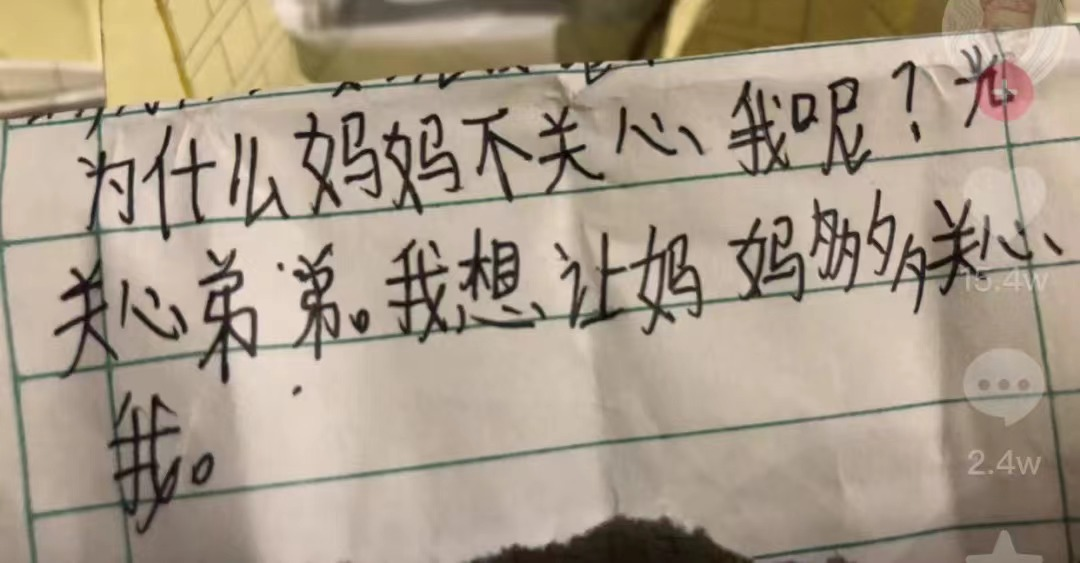 为什么妈妈不关心我呢？光
关心弟弟。我想让妈妈多多关心
我。
15.4w
2.4w